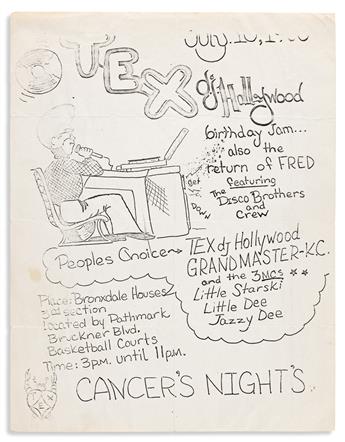 July.18,19
TEX
dj Hollywood
birthday Jam...
also the
return of FRED
featuring
The Disco Brothers
and
Crew
get
Down
Peoples Choice
TEX dj Hollywood
GRANDMASTER-K.C.
and the 3MCS
Little Starski
Little Dee
Jazzy Dee
Place: Bronxdale Houses
section
located by Pathmark
Bruckner Blvd.
Basketball Courts
Time: 3p.m. until 11p.m.
TEX
CANCER'S NIGHT'S